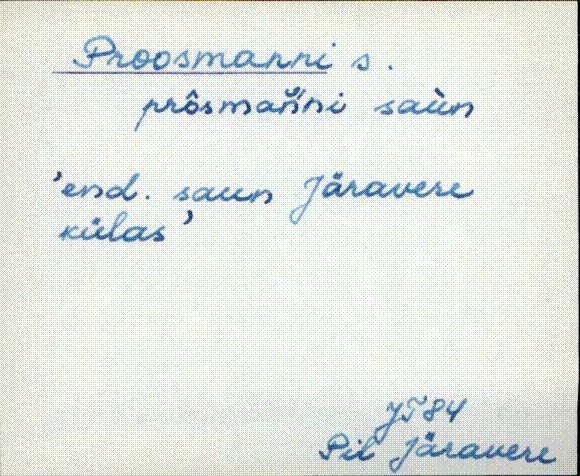 Proosmanni s.
prôsmaň̀ni saùn
'end. saun Järavere
külas'
JT 84
Pil Järavere